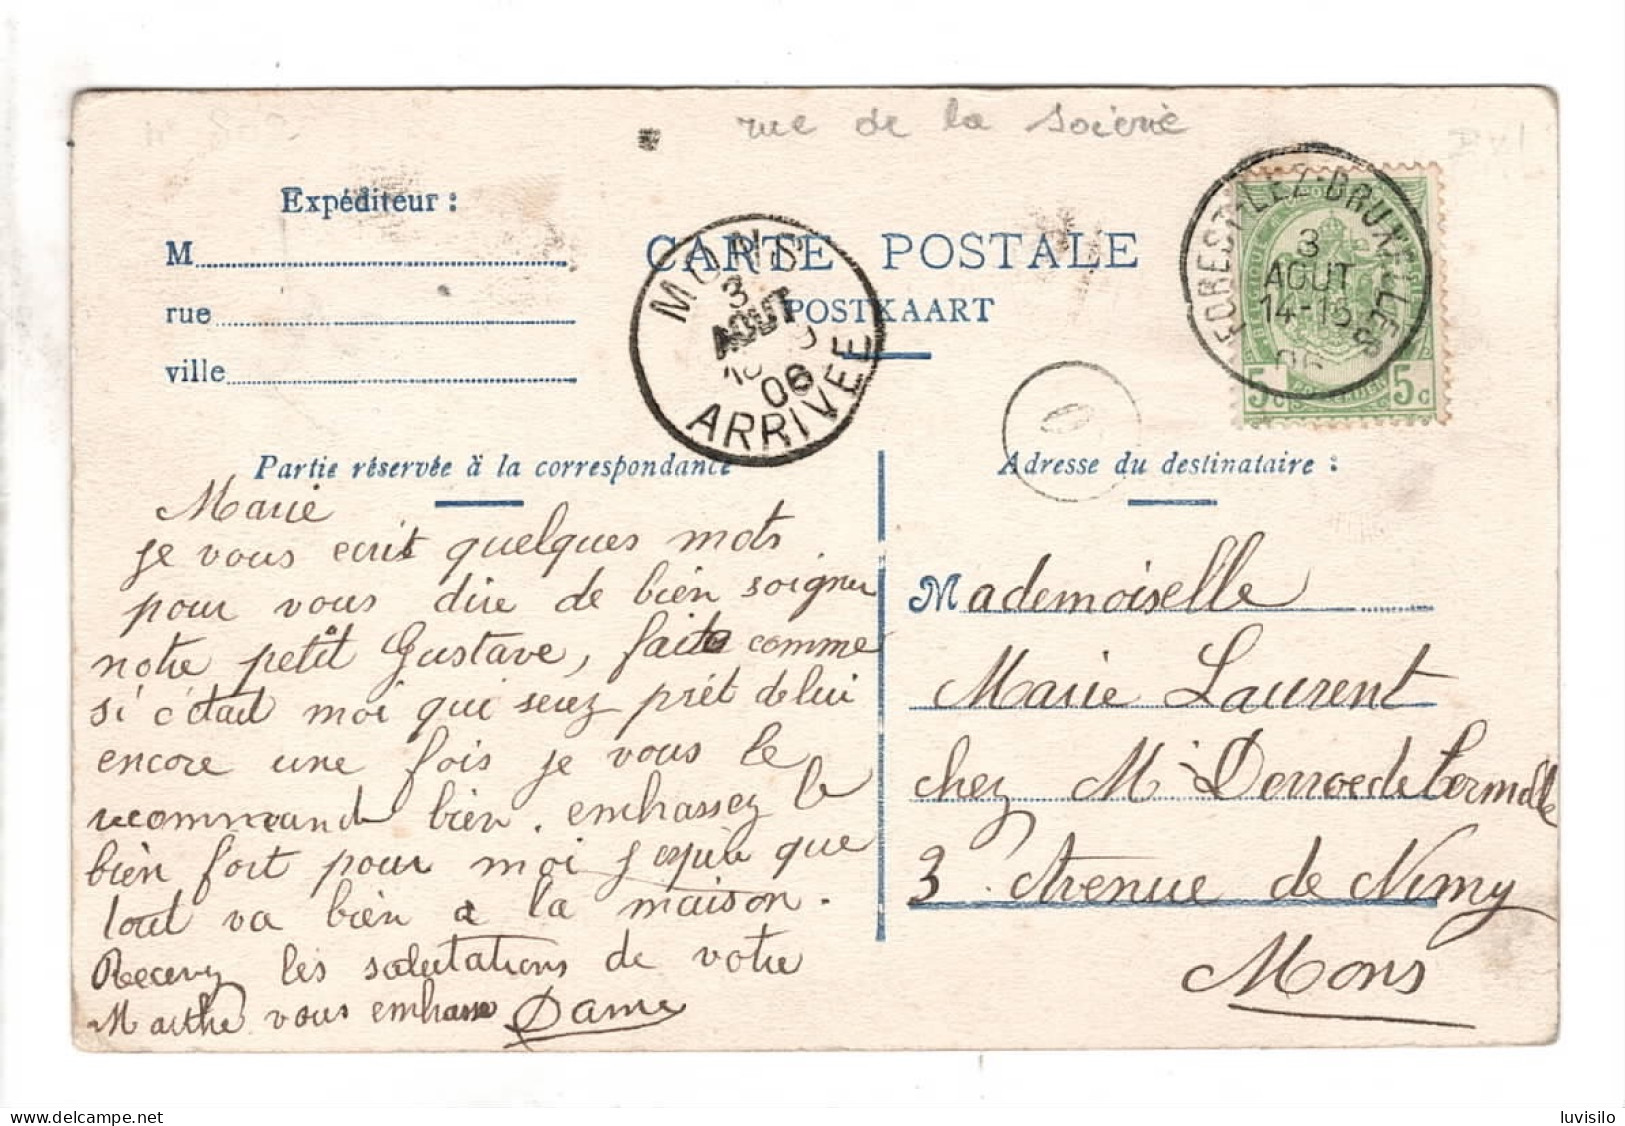 rue de la Soierie
Expéditeur :
M
rue
ville
CARTE POSTALE
POSTKAART
MONS
3
AOUT
06
ARRIVEE
FOREST-LEZ-BRUXELLES
3
AOUT
14-15
06
BELGIQUE
5c 5c
Partie réservée à la correspondance
Adresse du destinataire :
Marie
je vous ecrit quelques mots
pour vous dire de bien soigner
notre petit Gustave, faite comme
si c'étail moi qui serez prét de lui
encore une fois je vous le
recommand bien. embrassez le
bien fort pour moi j'espère que
tout va bien a la maison.
Recevez les salutations de votre
Marthe vous embrasse Dame
Mademoiselle
Marie Laurent
chez Mr
3. Avenue de Nimy
Mons
luvisilo